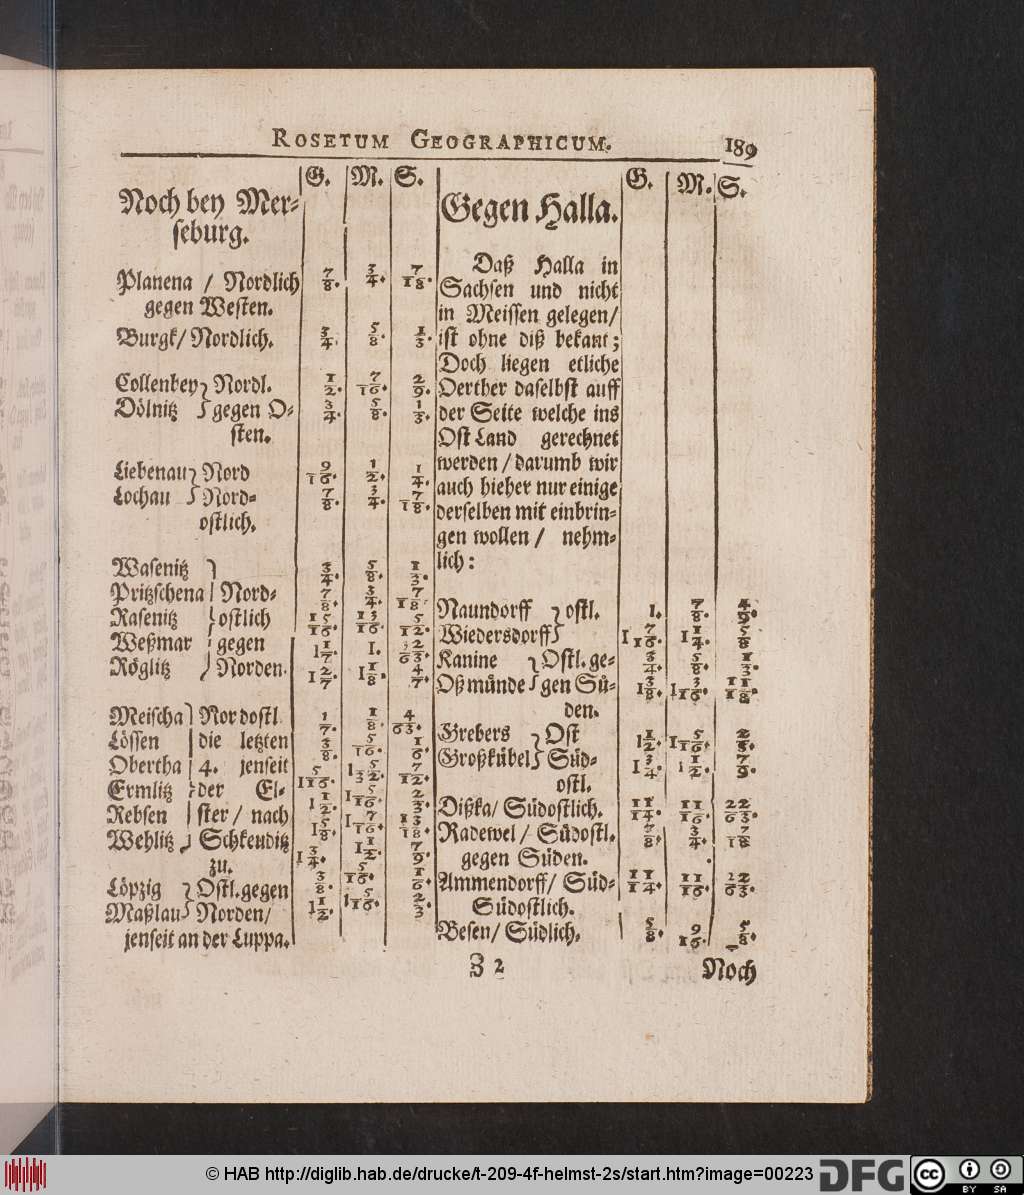 ROSETUM GEOGRAPHICUM. 189
G. M. S.
Noch bey Mer-
seburg.
Planena / Nordlich 7/8. 3/4. 7/18.
gegen Westen.
Burgk/ Nordlich. 3/4 5/8. 1/3.
Collenbey } Nordl. 1/2. 7/16. 2/9.
Dölnitz } gegen O- 3/4. 5/8. 1/3.
sten.
Liebenau } Nord 9/16. 1/2. 1/4.
Lochau } Nord- 7/8. 3/4. 7/18.
ostlich.
Wasenitz } 3/4. 5/8. 1/3.
Pritzschena } Nord- 7/8. 3/4. 7/18
Rasenitz } ostlich 15/16. 13/16. 5/12.
Weßmar } gegen 1 1/7. 1.
Röglitz } Norden. 1 2/7. 1 1/8. 4/7.
Meischa } Nordostl 1/7. 1/8. 4/63.
Lössen } die letzten 3/8. 5/16. 1/6.
Obertha } 4. jenseit 1 5/16. 7/12.
Ermlitz } der El- 1 1/2. 1 5/16. 2/3.
Rebsen } ster / nach 1 5/8. 1 7/16. 13/18.
Wehlitz } Schkeuditz 1 3/4. 1 1/2. 7/9.
zu.
Löpzig } Ostl. gegen 3/8. 5/16. 1/6.
Maßlau } Norden/ 1 1/2. 1 5/16. 2/3.
jenseit an der Luppa.
G. M. S.
Gegen Halla.
Daß Halla in
Sachsen und nicht
in Meissen gelegen/
ist ohne diß bekant;
Doch liegen etliche
Oerther daselbst auff
der Seite welche ins
Ost Land gerechnet
werden / darumb wir
auch hieher nur einige
derselben mit einbrin-
gen wollen / nehm-
lich:
Naundorff } ostl. 1. 7/8. 4/9.
Wiedersdorff } 1 7/16. 1 1/4. 5/8
Kanine } Ostl. ge- 3/4. 5/8. 1/3.
Oßmünde } gen Sü- 1 3/8. 1 3/16. 11/18.
den.
Grebers } Ost 1 1/2. 1 5/16. 2/3.
Großkübel } Süd- 1 3/4. 1 1/2. 7/9.
ostl.
Dißka/ Südostlich. 11/14. 11/16. 22/63.
Radewel / Südostl. 7/8. 3/4. 7/18
gegen Süden.
Ammendorff/ Süd- 11/14. 11/16. 22/63.
Südostlich.
Besen/ Südlich. 5/8. 9/16. 5/8.
Z 2 Noch
© HAB http://diglib.hab.de/drucke/t-209-4f-helmst-2s/start.htm?image=00223 DFG cc BY SA